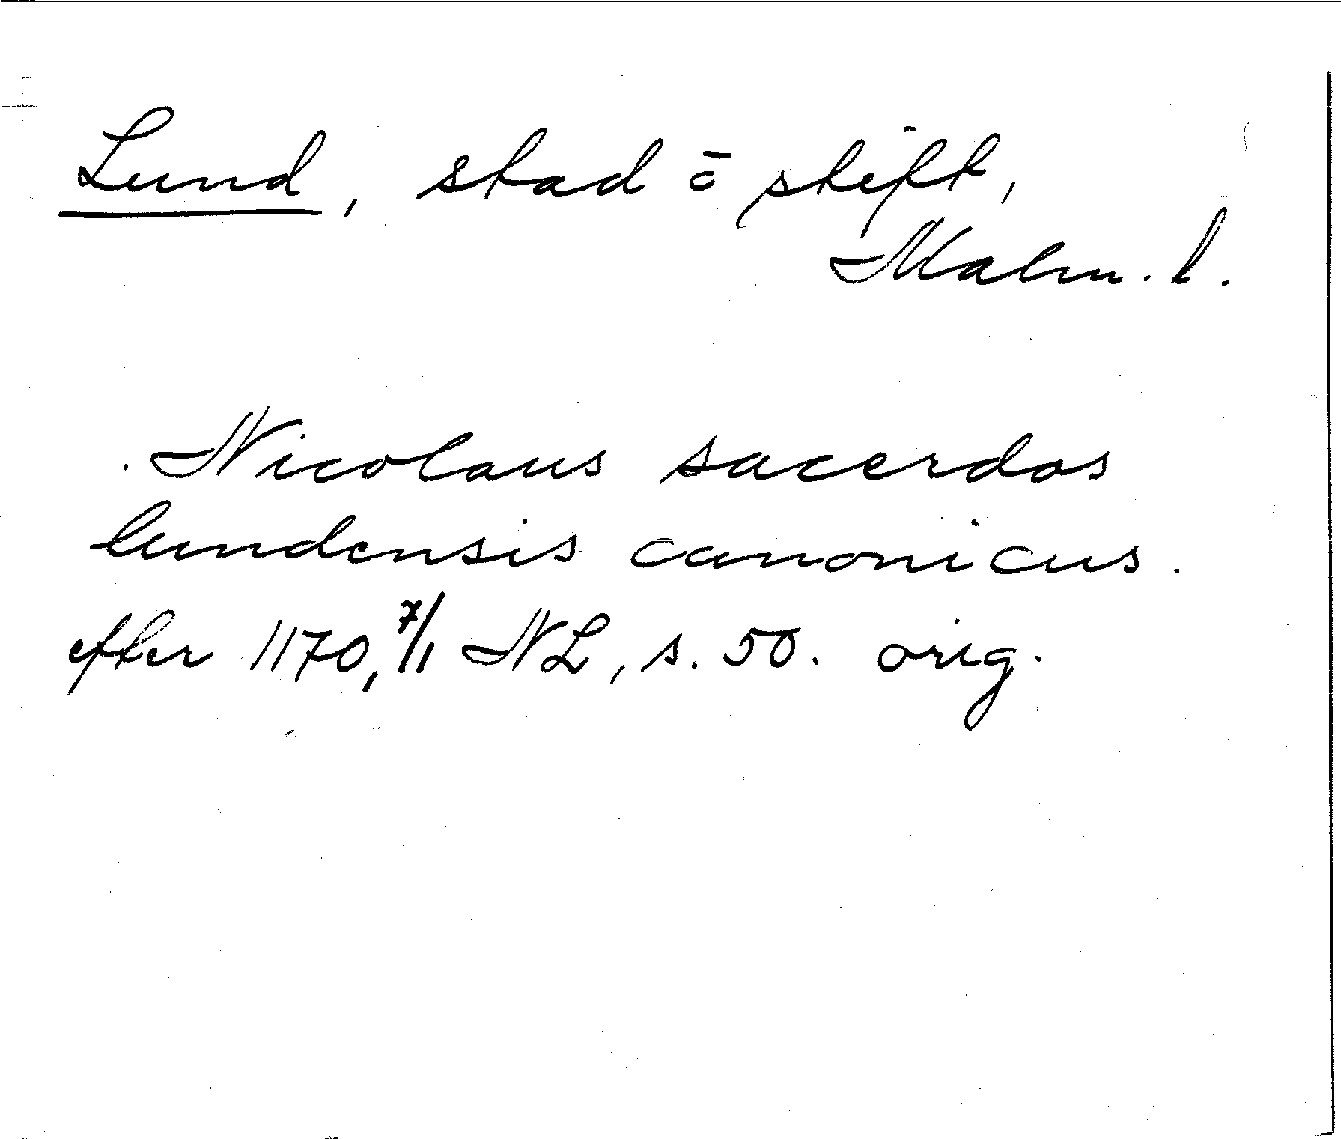 Lund, stad o stift,
Malm. l.
Nicolaus sacerdos
lundensis canonicus.
efter 1170, 7/1 NL, s. 50. orig.